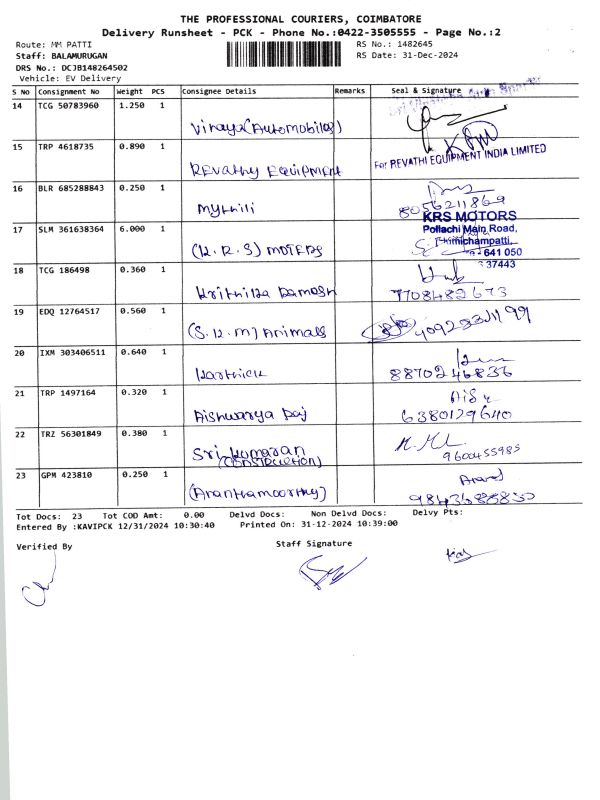 THE PROFESSIONAL COURIERS, COIMBATORE
Delivery Runsheet - PCK - Phone No.:0422-3505555 - Page No.:2
Route: MM PATTI RS No.: 1482645
Staff: BALAMURUGAN RS Date: 31-Dec-2024
DRS No.: DCJB148264502
Vehicle: EV Delivery
S No Consignment No Weight PCS Consignee Details Remarks Seal & Signature
14 TCG 50783960 1.250 1
Vinaya (Automobiles)
15 TRP 4618735 0.890 1
For REVATHI EQUIPMENT INDIA LIMITED
REVAthy EQUIPMENT
16 BLR 685288843 0.250 1
Mythili 8056211869
KRS MOTORS
17 SLM 361638364 6.000 1 Pollachi Main Road,
(K.R.S) MOTERS
641 050
37443
18 TCG 186498 0.360 1
Krithika 7708482673
19 EDQ 12764517 0.560 1
(S.K.M) Animals
20 IXM 303406511 0.640 1
Karthick 8870246836
21 TRP 1497164 0.320 1
Aishwarya Raj 6380129640
22 TRZ 56301849 0.380 1
Sri Kumaran 9600455985
(CONSTRUCTION)
23 GPM 423810 0.250 1
(Ananthamoorthy) 9843688830
Tot Docs: 23 Tot COD Amt: 0.00 Delvd Docs: Non Delvd Docs: Delvy Pts:
Entered By :KAVIPCK 12/31/2024 10:30:40 Printed On: 31-12-2024 10:39:00
Verified By Staff Signature